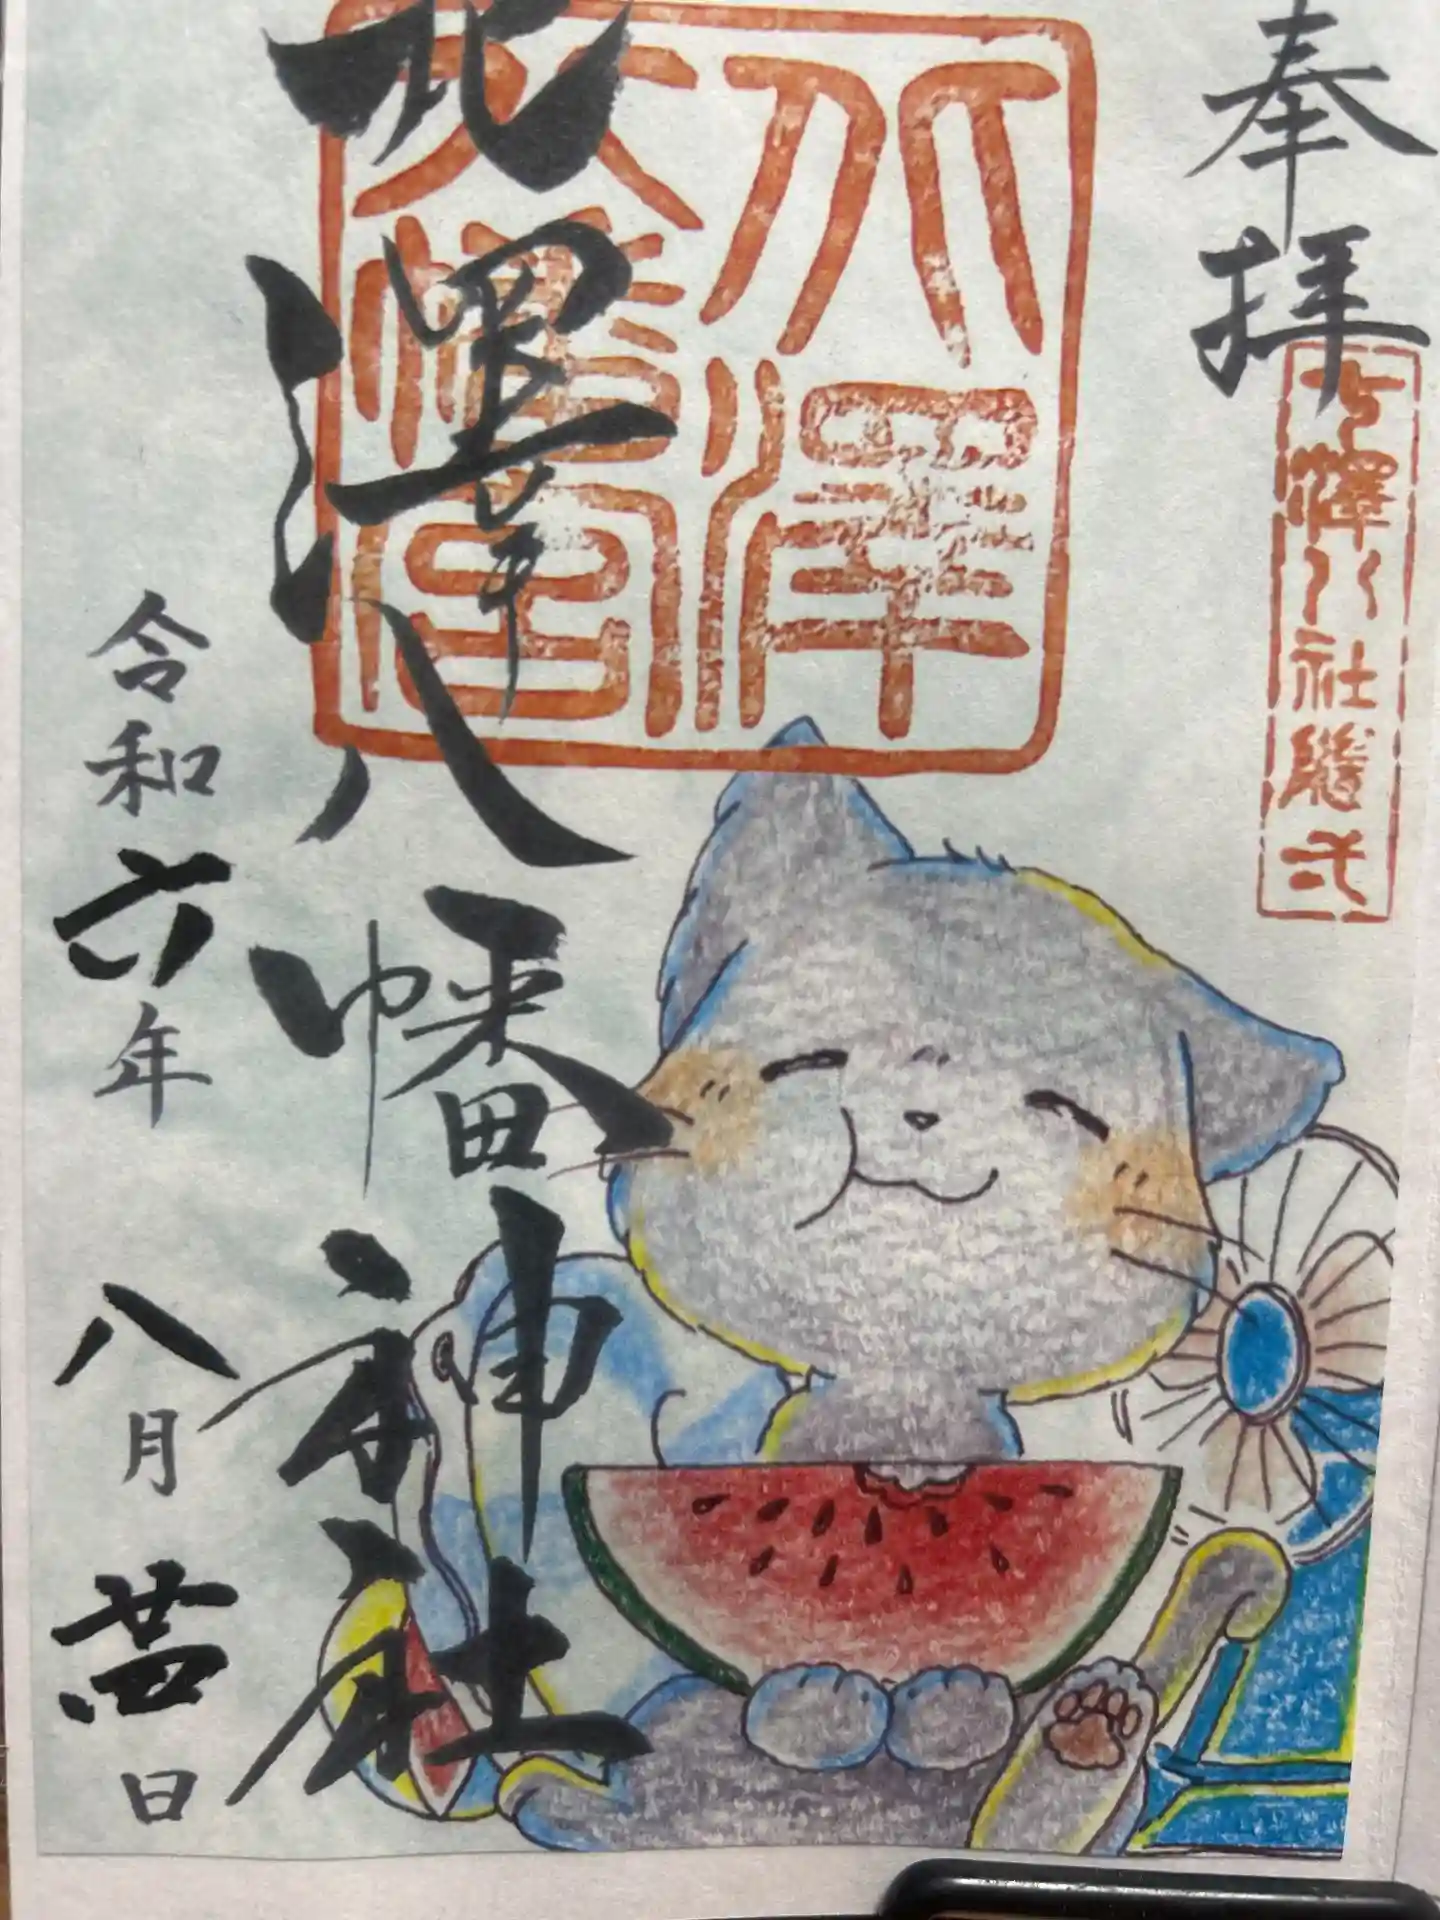 奉拝
七澤八社隨弌
北澤
八幡宮
北澤八幡神社
令和六年八月廿四日